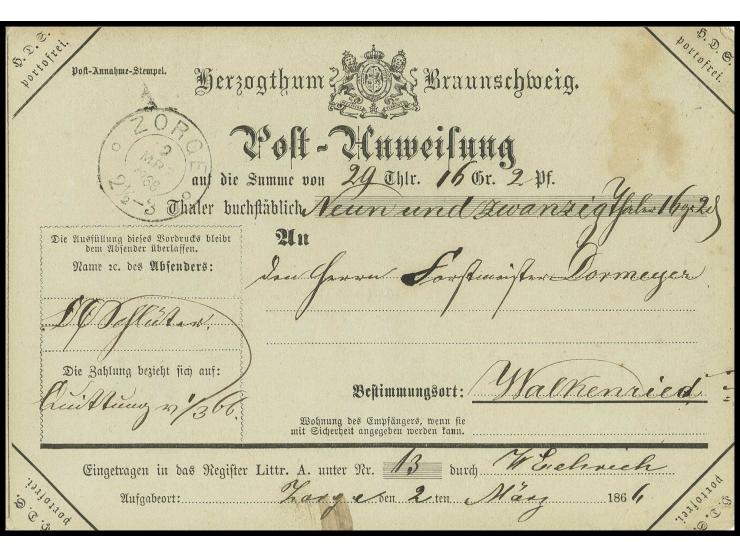 H. D. S.
portofrei.
H. D. S.
portofrei.
Post-Annahme-Stempel.
Herzogthum Braunschweig.
ZORGE
2
MRZ
1866
2½-3
Post-Anweisung
auf die Summe von 29 Thlr. 16 Gr. 2 Pf.
Thaler buchstäblich Neun und zwanzig Thaler 16 gr 2 d
An
den Herrn Forstmeister Dormeyer
Die Ausfüllung dieses Vordrucks bleibt
dem Absender überlassen.
Name ꝛc. des Absenders:
Schlüter.
Die Zahlung bezieht sich auf:
Quittung v 1/3 66.
Bestimmungsort: Walkenried
Wohnung des Empfängers, wenn sie
mit Sicherheit angegeben werden kann.
Eingetragen in das Register Littr. A. unter Nr. 13 durch
Aufgabeort: Zorge den 2 ten März 1866
H. D. S.
portofrei.
H. D. S.
portofrei.